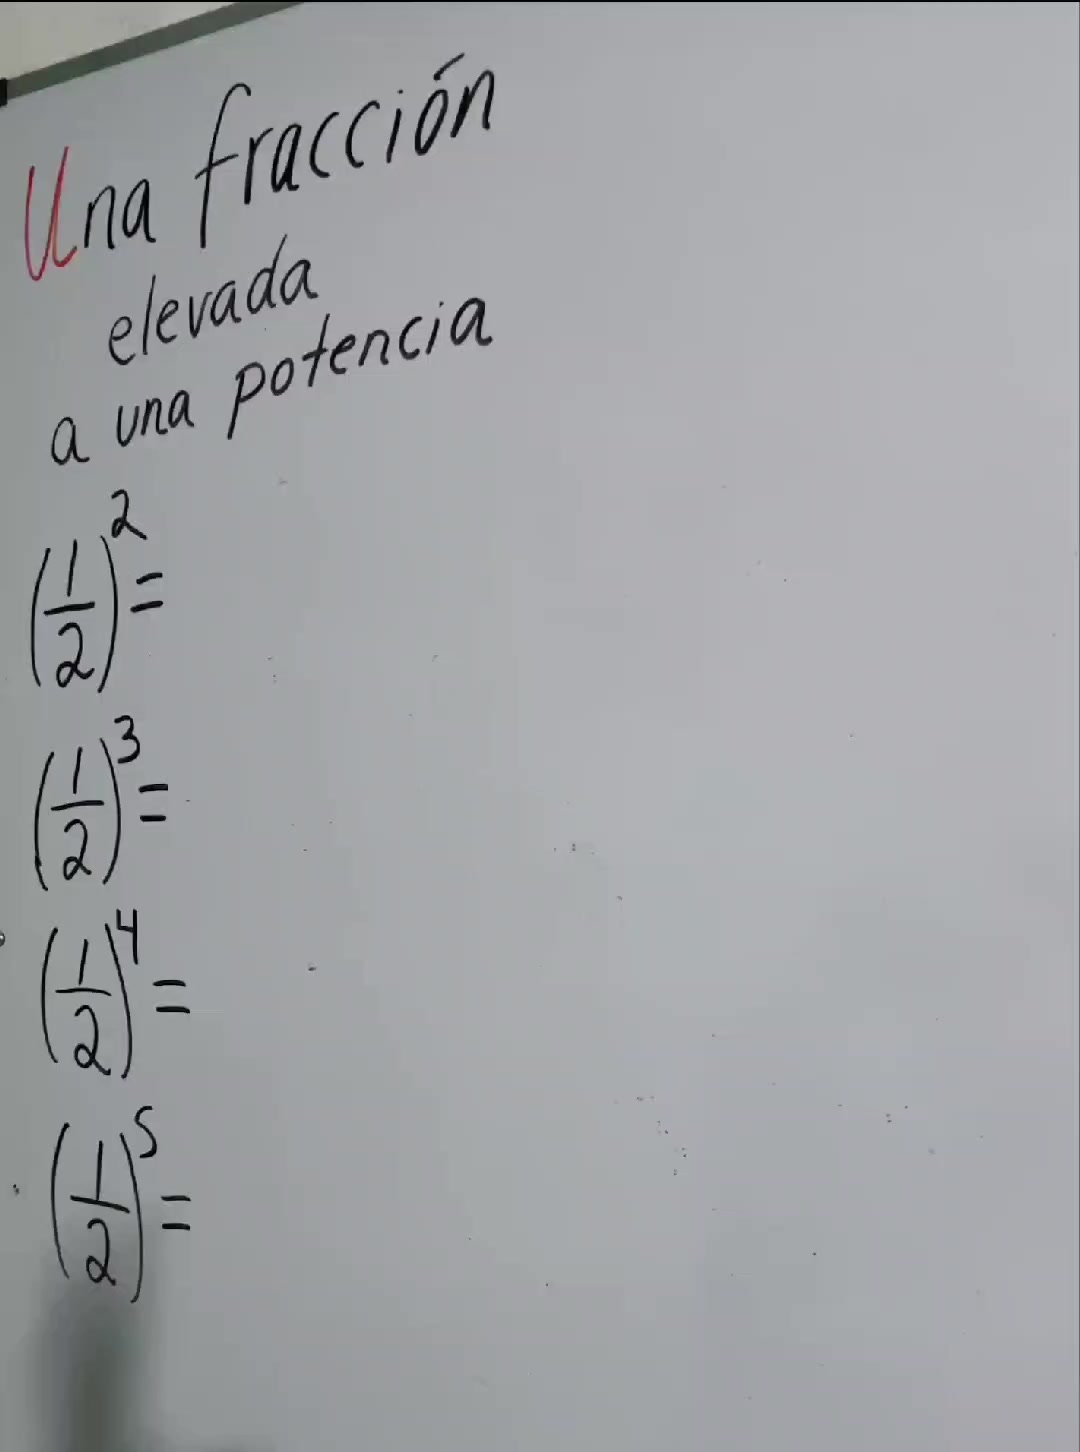 Una fracción
elevada
a una potencia
(1/2)²=
(1/2)³=
(1/2)⁴=
(1/2)⁵=